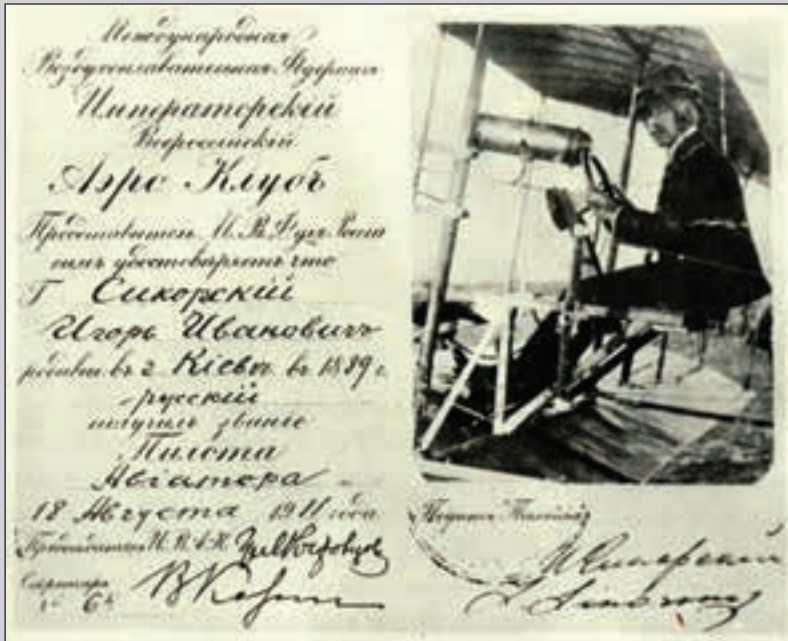 Международная
Воздухоплавательная Федерація
Императорскій
Всероссійскій
Аэро Клубъ
И. В.
симъ удостоверяетъ что
Г Сикорскій
Игорь Ивановичъ
родивш. въ г. Кіевѣ въ 1889 г.
русскій
получилъ званіе
Пилота
Авіатора
18 Августа 1911 года.
Секретарь
64
Подпись Пилота
И Сикорский